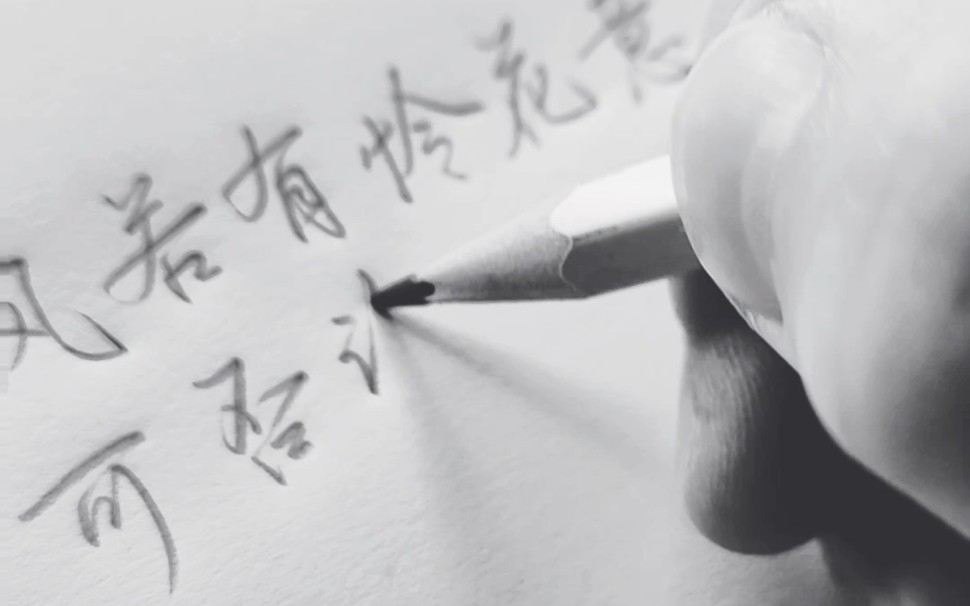 风若有怜花意
可否